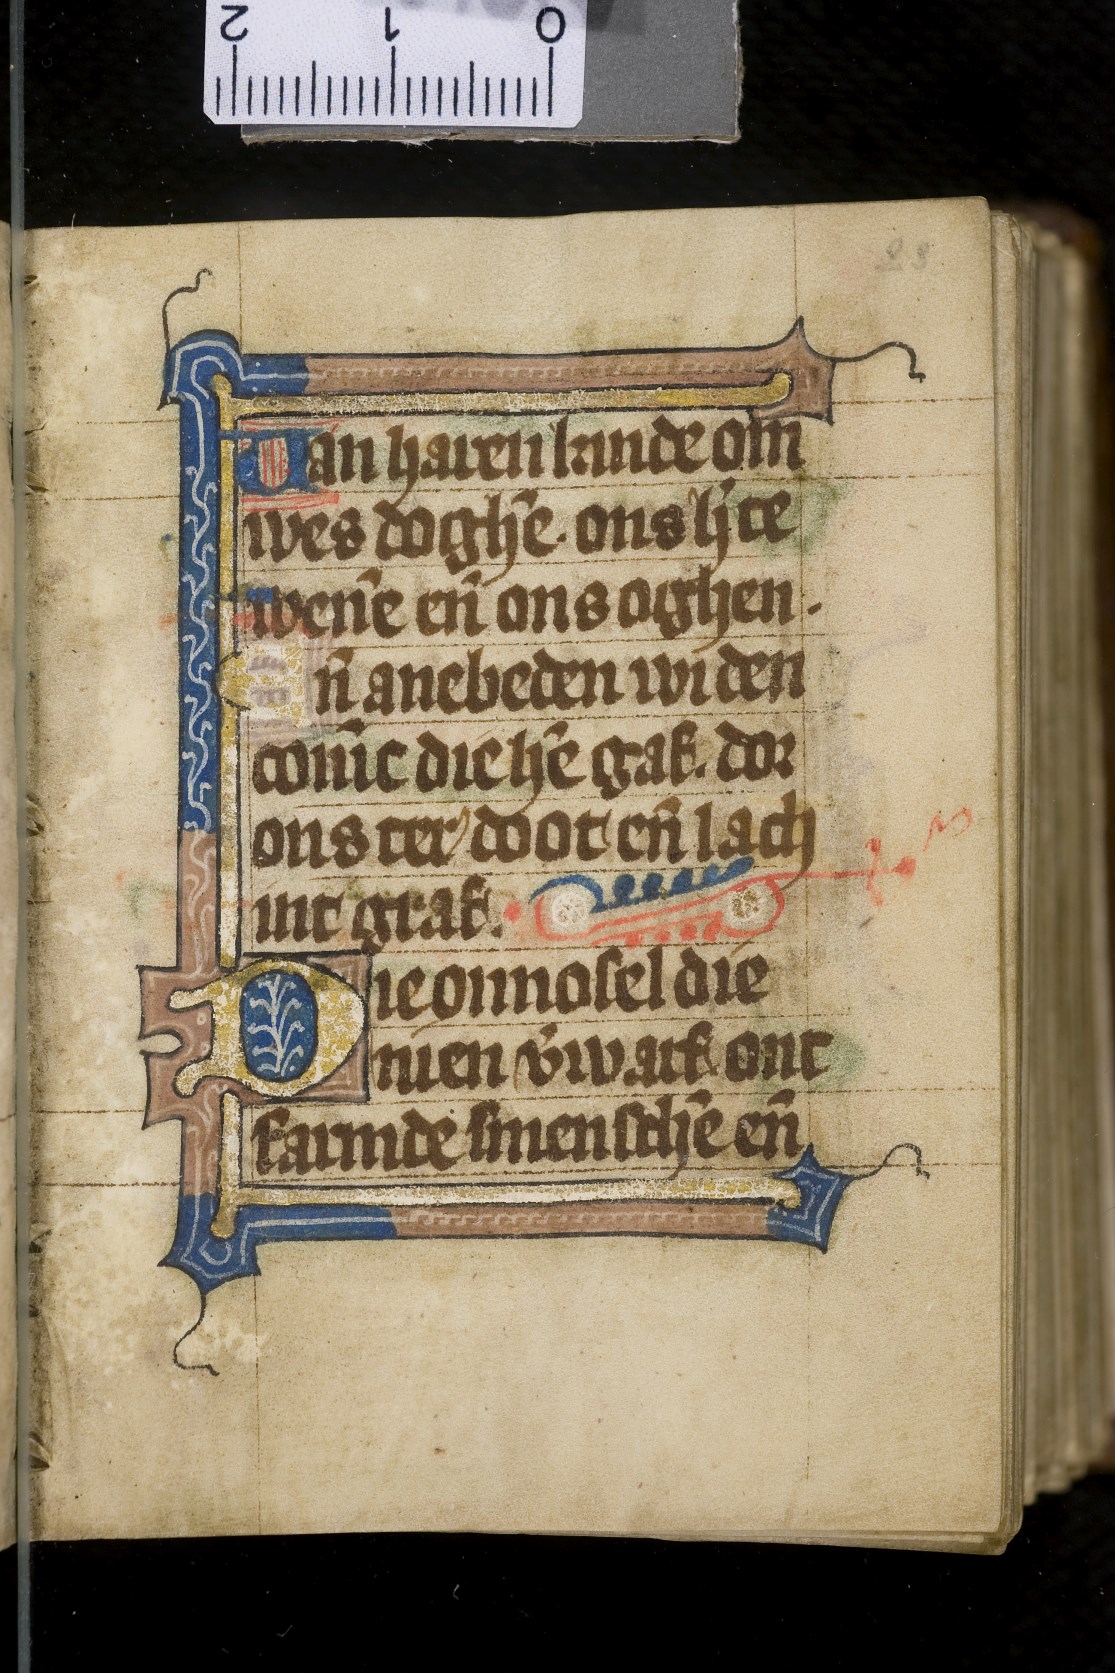 2 1 0
23
Van haren kinde om
wes doghē. ons hr̄te
wenē en̄ ons oghen.
En̄ anebeden wi den
conīc die hē gaf. dor
ons ter doot en̄ lach
int graf.
Die onnosel die
nien v̄warf ont
farmde smenschē en̄